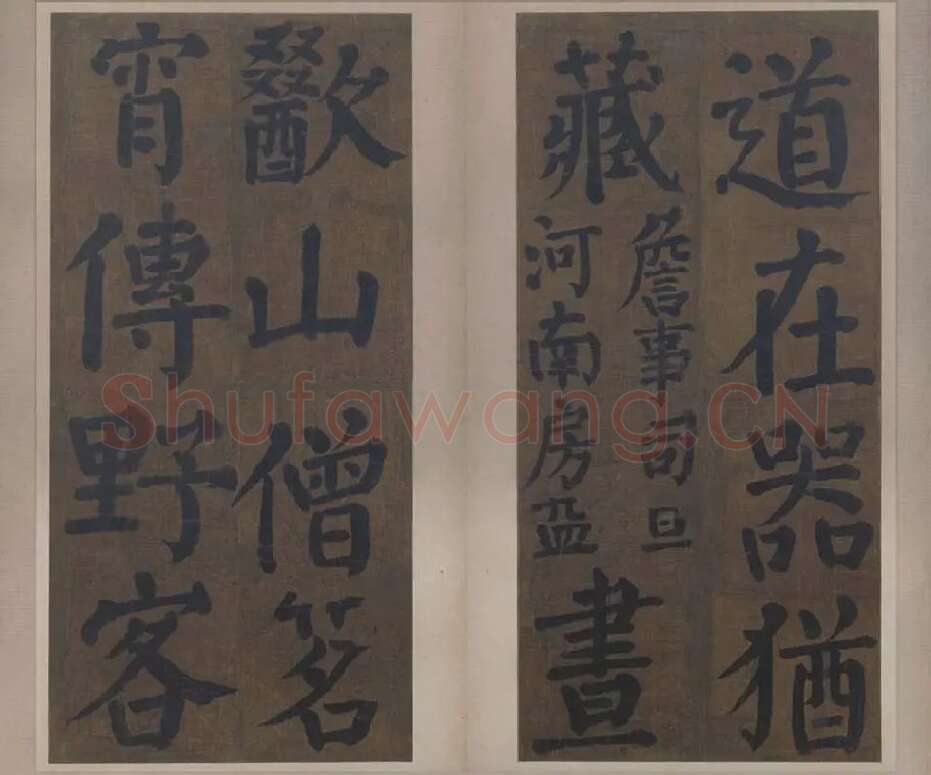 道在器猶
藏
詹事司直
河南房益
晝
歠山僧茗
宵傳野客
Shufawang.CN